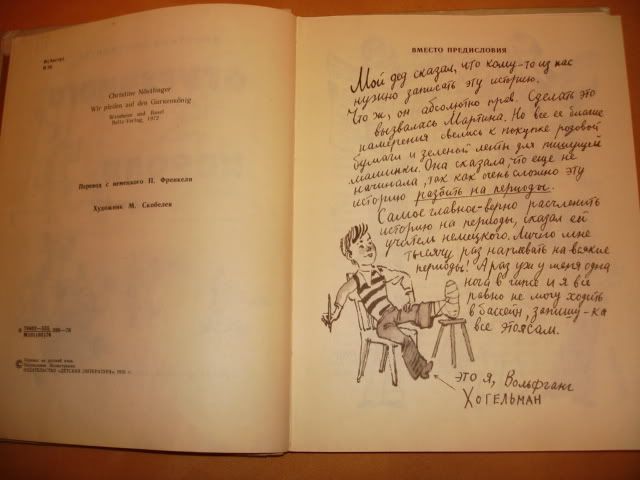 И(Австр)
Н 56
Christine Nöstlinger
Wir pfeifen auf den Gurkenkönig
Weinheim und Basel
Beltz-Verlag, 1972
Перевод с немецкого П. Френкеля
Художник М. Скобелев
70802—355
М101(03)76
ИЗДАТЕЛЬСТВО «ДЕТСКАЯ ЛИТЕРАТУРА»
ВМЕСТО ПРЕДИСЛОВИЯ
Мой дед сказал, что кому-то из нас
нужно записать эту историю.
Что ж, он абсолютно прав. Сделать это
вызвалась Мартина. Но все ее благие
намерения свелись к покупке розовой
бумаги и зеленой ленты для пишущей
машинки. Она сказала, что еще не
начинала, так как очень сложно эту
историю разбить на периоды.
Самое главное-верно расчленить
историю на периоды, сказал ей
учитель немецкого. Лично мне
тысячу раз наплевать на всякие
периоды! А раз уж у меня одна
нога в гипсе и я все
равно не могу ходить
в бассейн, запишу-ка
все это я сам.
это я, Вольфганг
ХОГЕЛЬМАН